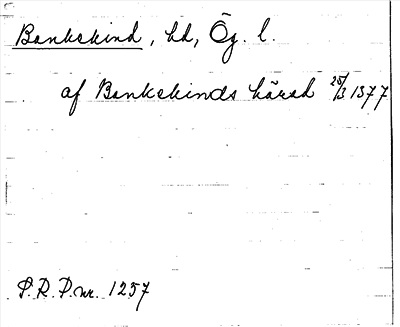 Bankekind, hd, Ög. l.
af Bankekinds härad 25/3 1377
S.R.P. nr. 1257